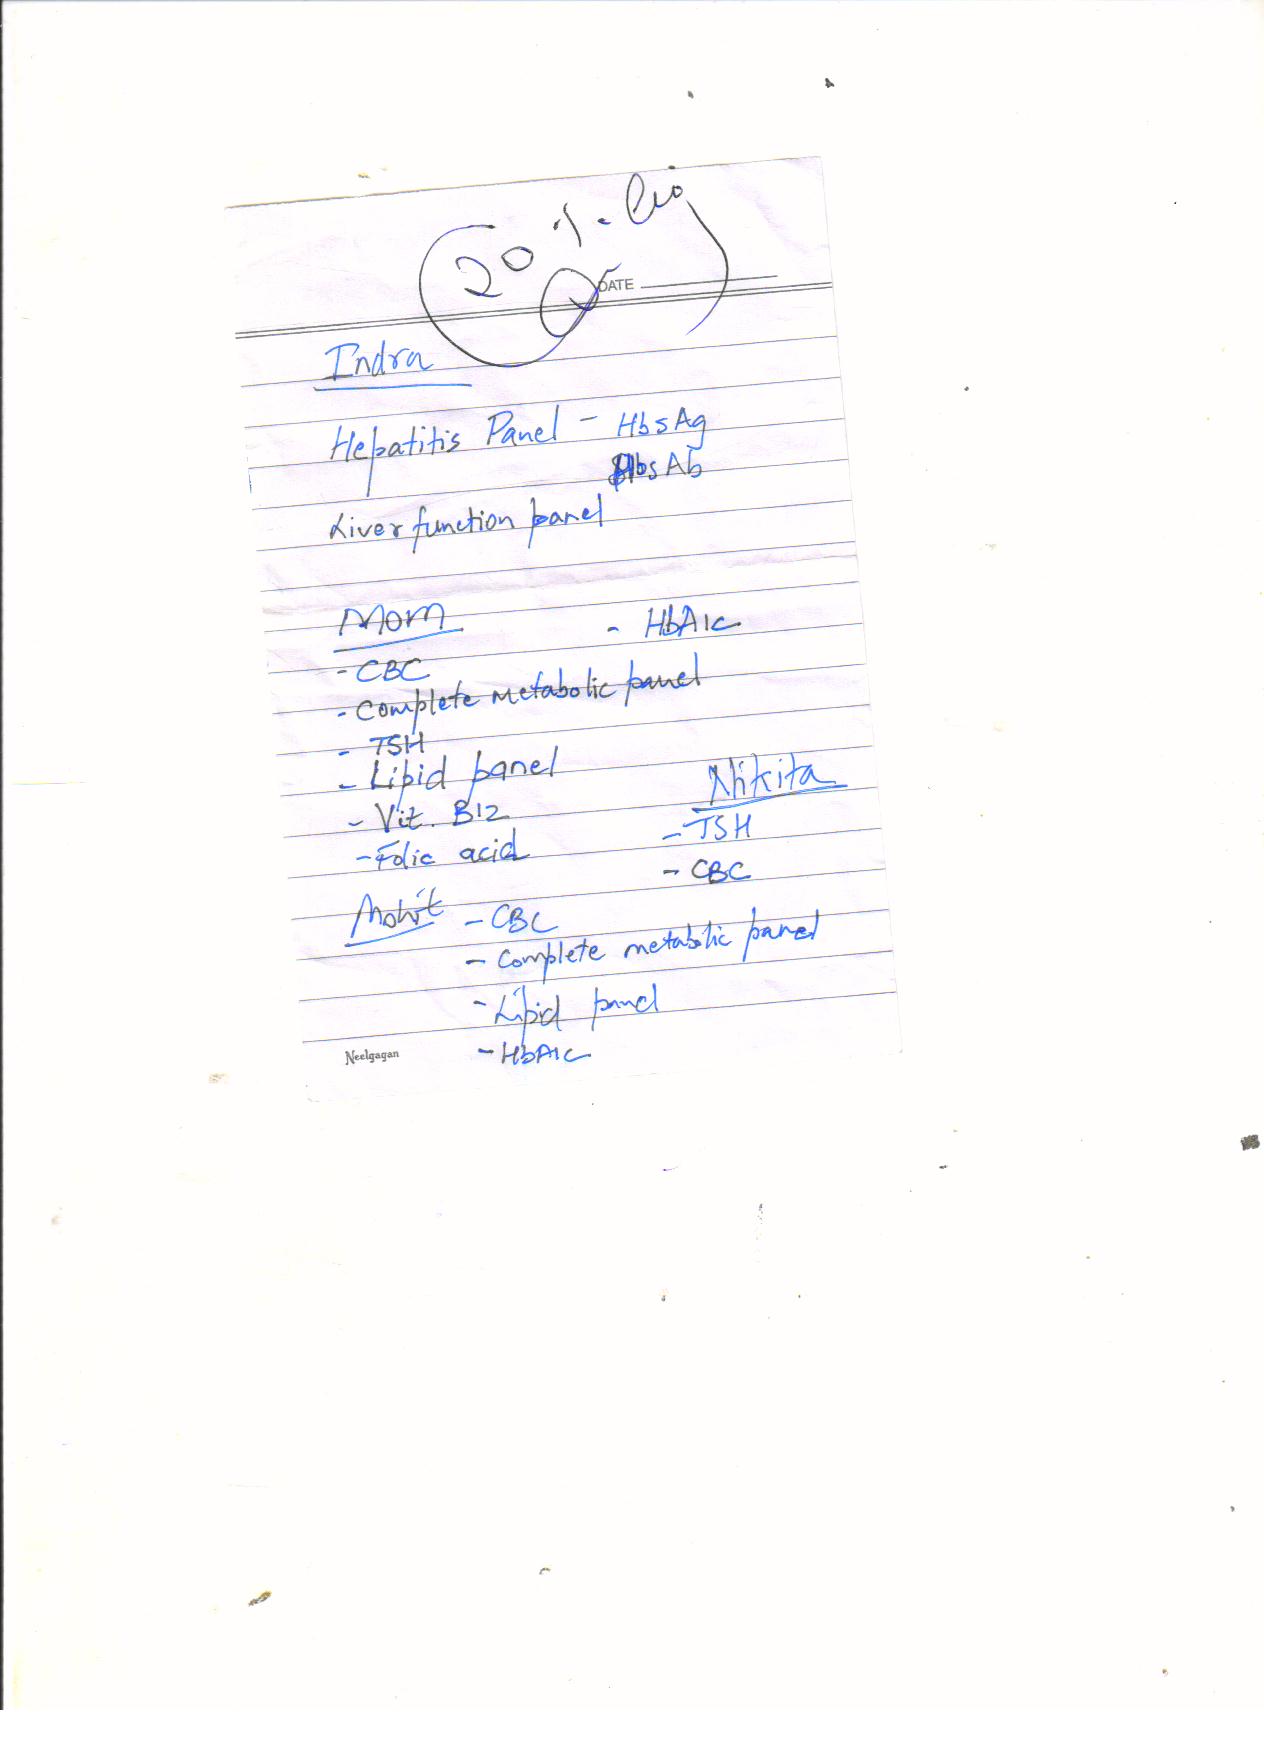 20 %.
DATE
Indra
Hepatitis Panel - HbsAg
HbsAb
Liver function panel
Mom - HbA1c
- CBC
- Complete metabolic panel
- TSH
- Lipid panel
- Vit. B12
- Folic acid
Nikita
- TSH
- CBC
Mohit - CBC
- Complete metabolic panel
- Lipid panel
- HbA1c
Neelgagan